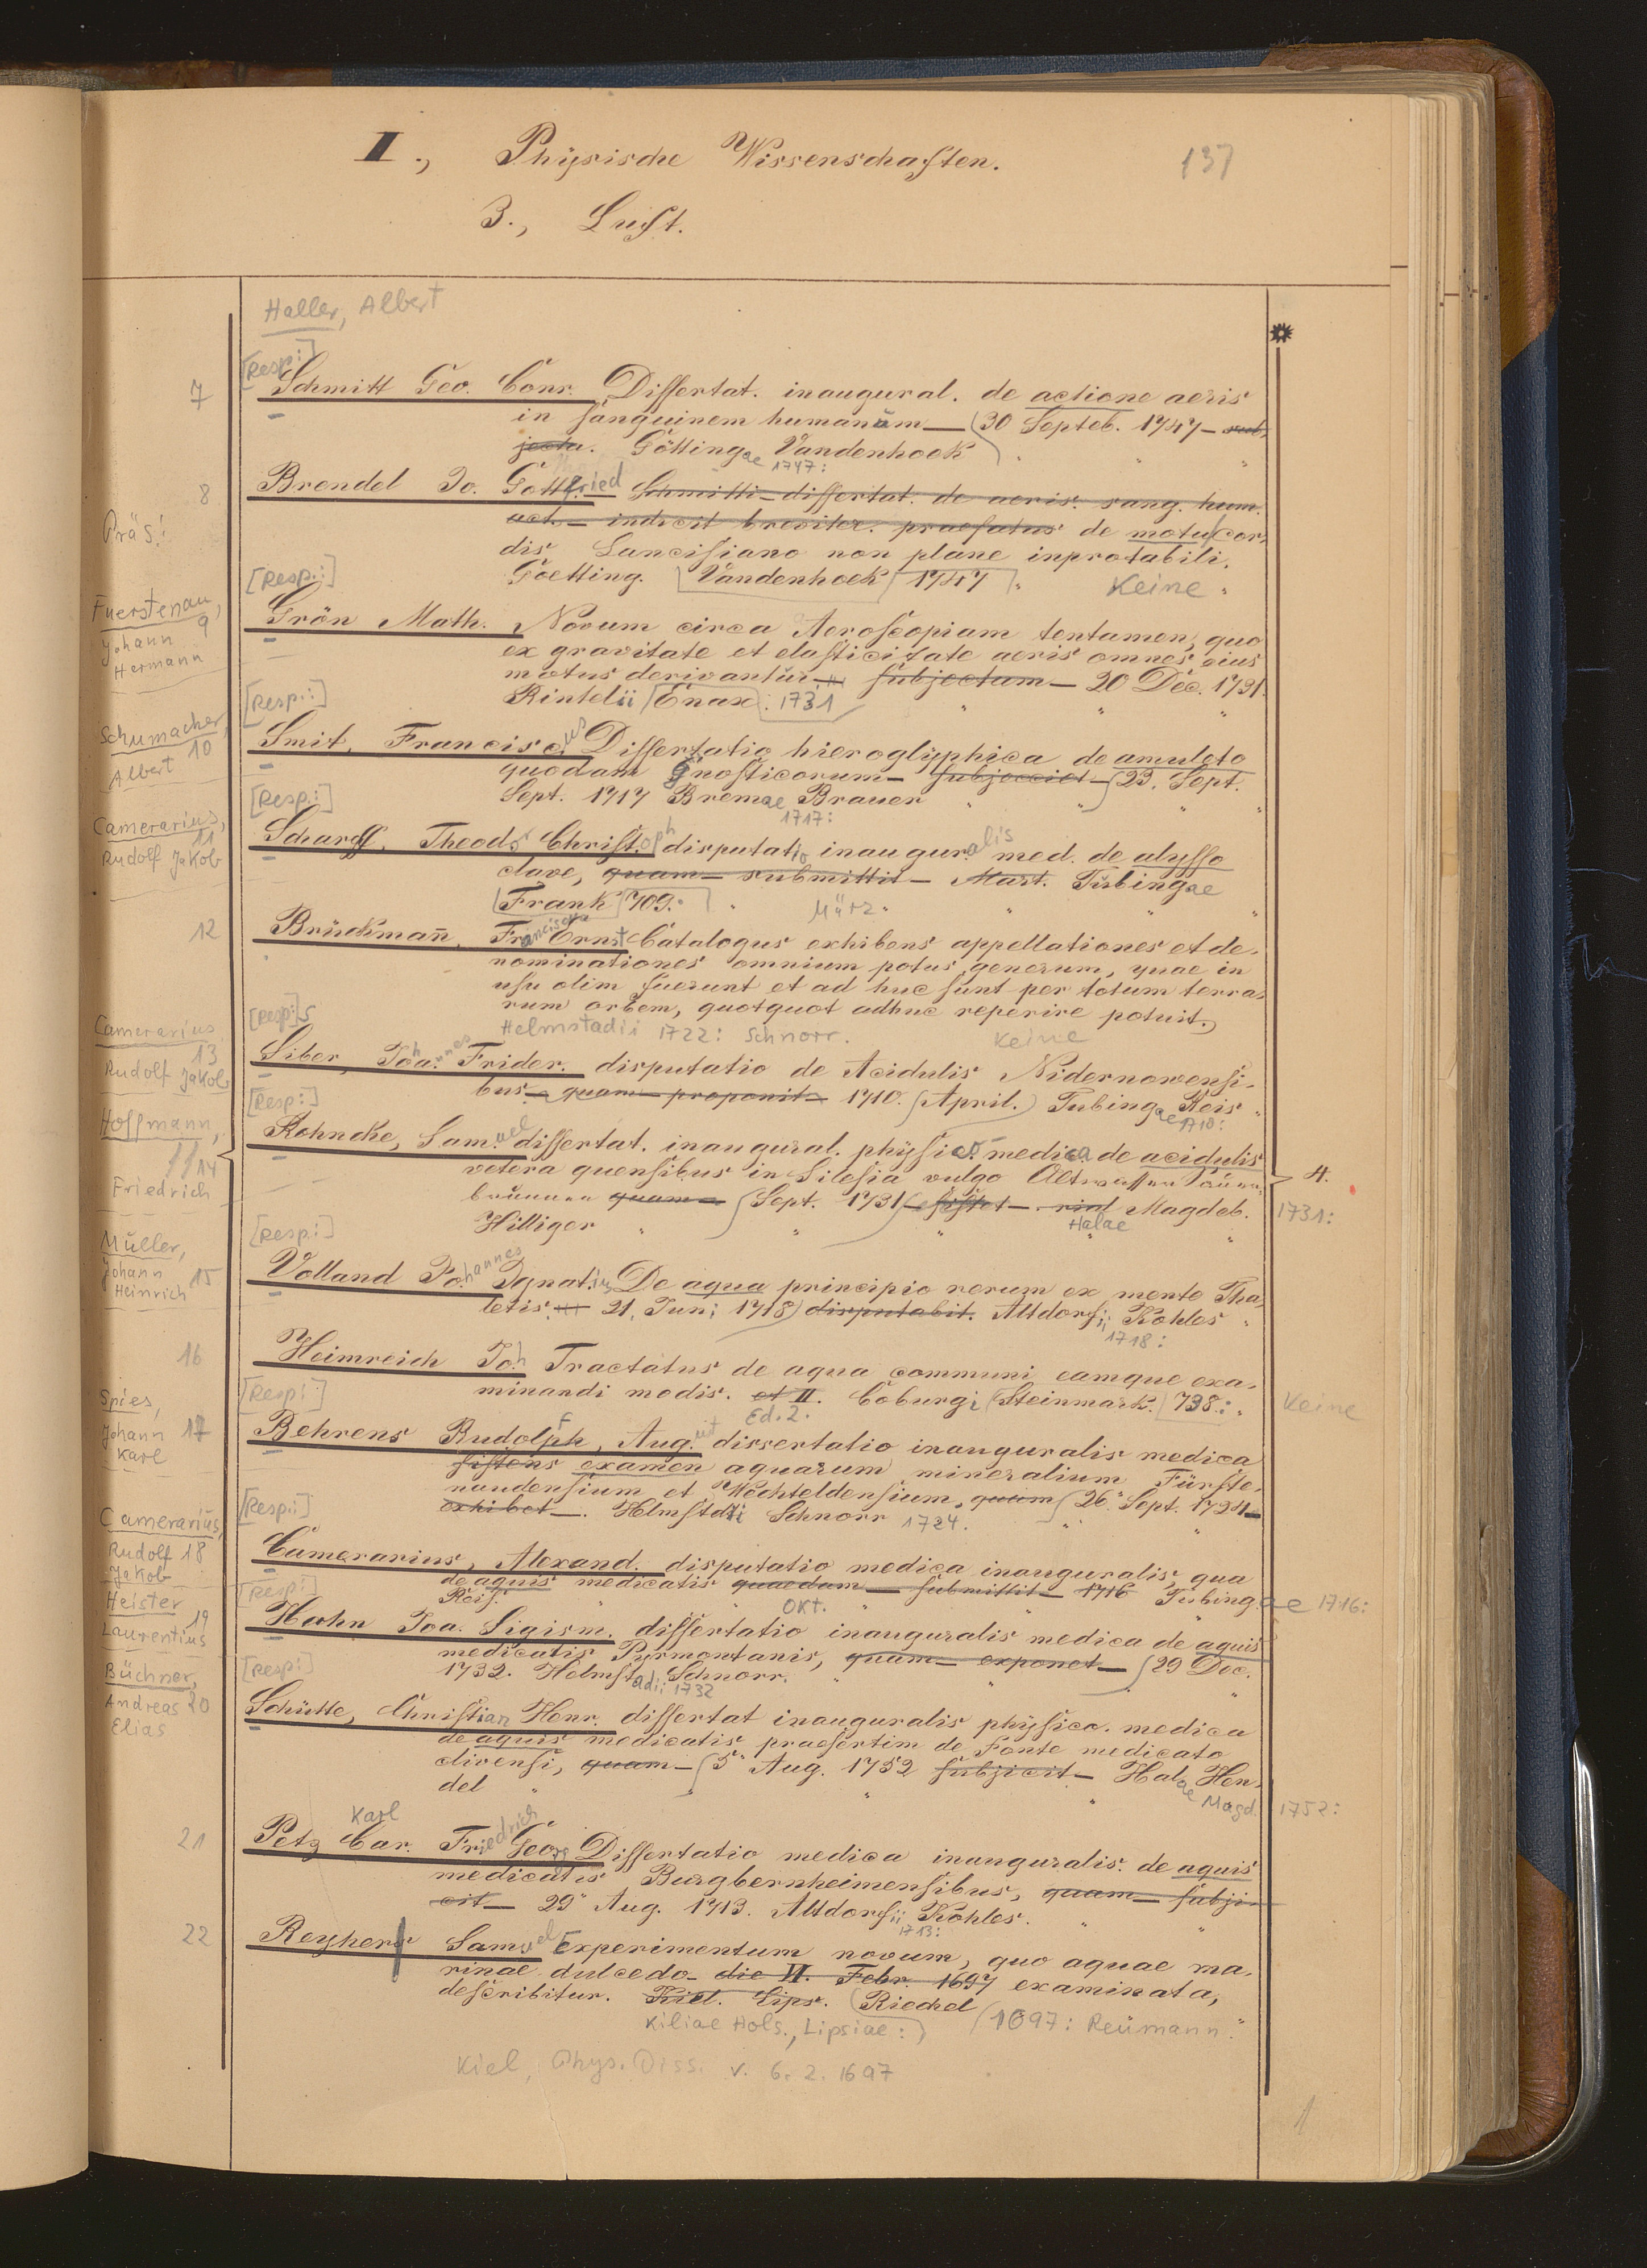 II., Physische Wissenschaften.
137
3., Luft.
Haller, Albert
[Resp:]
7 Schmitt Geo. Conr. Dissertat. inaugural. de actione aeris
in sanguinem humanum — (30 Septeb. 1747 — sub-
jecta. Göttingae Vandenhoek
1747:
8 Brendel Jo. Gottfried Schmitti — dissertat. de aeris. sang. hum.
act. — indicit breviter. praefatus de motu cor-
Präs:
dis Lancisiano non plane inprotabili.
Goetting. Vandenhoek 1747 Keine
[Resp:]
Fuerstenau,
Johann 9
Hermann
Grön Math. Novum circa Aeroscopiam tentamen, quo
ex gravitate et elasticitate aeris omnes eius
motus derivantur — subjectum — 20 Dec. 1731.
Rintelii Enax: 1731
[Resp:]
Schumacher,
10
Albert
Smit, Franciscus Dissertatio hieroglyphica de amuleto
quodam gnosticorum — subjecciet — (23. Sept.
Sept. 1717 Bremae Brauer
1717:
[Resp:]
Camerarius,
11
Rudolf Jakob
Scharff, Theod. Christoph disputatio inauguralis med. de alysso
clave, quam — submittit — Mart. Tübingae
Frank 709. März
12 Brückmañ, Franciscus Ernst Catalogus exhibens appellationes et de-
nominationes omnium potus generum, quae in
usu olim fuerunt et ad huc sunt per totum terra-
rum orbem, quotquot adhuc reperire potuit.
Helmstadii 1722: Schnorr. Keine
[Resp:]
Camerarius
13
Rudolf Jakob
Siber, Johannes Frider. disputatio de Acidulis Nidernowensi-
bus — quam — proponit — 1710. (April.) Tubingae Reis
1710:
[Resp:]
Hoffmann,
14
Friedrich
Kohncke, Samuel dissertat. inaugural. physico medica de acidulis
vetera quensibus in Silesia vulgo Altwasser Sauer-
brunnen quam — (Sept. 1731) — sistet — Magdeb. 1731:
4.
Hilliger Halae
[Resp:]
Müller,
Johann 15
Heinrich
Volland Johannes Ignatius De aqua principio rerum ex mente Tha-
letis 21. Juni 1718) disputabit. Altdorfii Kohles
1718:
16 Heimreich Joh Tractatus de aqua communi eamque exa-
minandi modis. et II. Coburgi (Steinmark.) 738.: Keine
Ed. 2.
[Resp:]
Spies,
Johann 17
Karl
Behrens Rudolph, Aug. dissertatio inauguralis medica
sistens examen aquarum mineralium Fürste-
naudensium et Wechteldensium, quam (26. Sept. 1724 —
exhibet —. Helmstdti Schnorr 1724.
[Resp:]
Camerarius,
Rudolf 18
Jakob
Camerarius, Alexand. disputatio medica inauguralis, qua
de aquis medicatis quaedam — submittit — 1716 Tubingae 1716:
Reis. Okt.
[Resp:]
Heister
19
Laurentius
Hahn Joa. Sigism. dissertatio inauguralis medica de aquis
medicatis Pyrmontanis, quam — exponet — (29 Dec.
1732. Helmstadii Schnorr.
1732
[Resp:]
Büchner,
Andreas 20
Elias
Schütte, Christian Henr. dissertat inauguralis physico. medica
de aquis medicatis praesertim de Fonte medicato
clivensi, quam — (5 Aug. 1752 subjicit — Halae Hen-
del Magd. 1752:
Karl
21 Petz Car. Friedrich Georg Dissertatio medica inauguralis. de aquis
medicatis Burgbernheimensibus, quam — subji-
cit — 29 Aug. 1713. Altdorfii Kohles.
1713:
22 Reyher Samuel Experimentum novum, quo aquae ma-
rinae dulcedo — die VI. Febr. 1697 examinata,
describitur. Kiel. Lips. (Riechel
Kiliae Hols., Lipsiae:) (1697: Reümann
Kiel, Phys. Diss. v. 6. 2. 1697
1